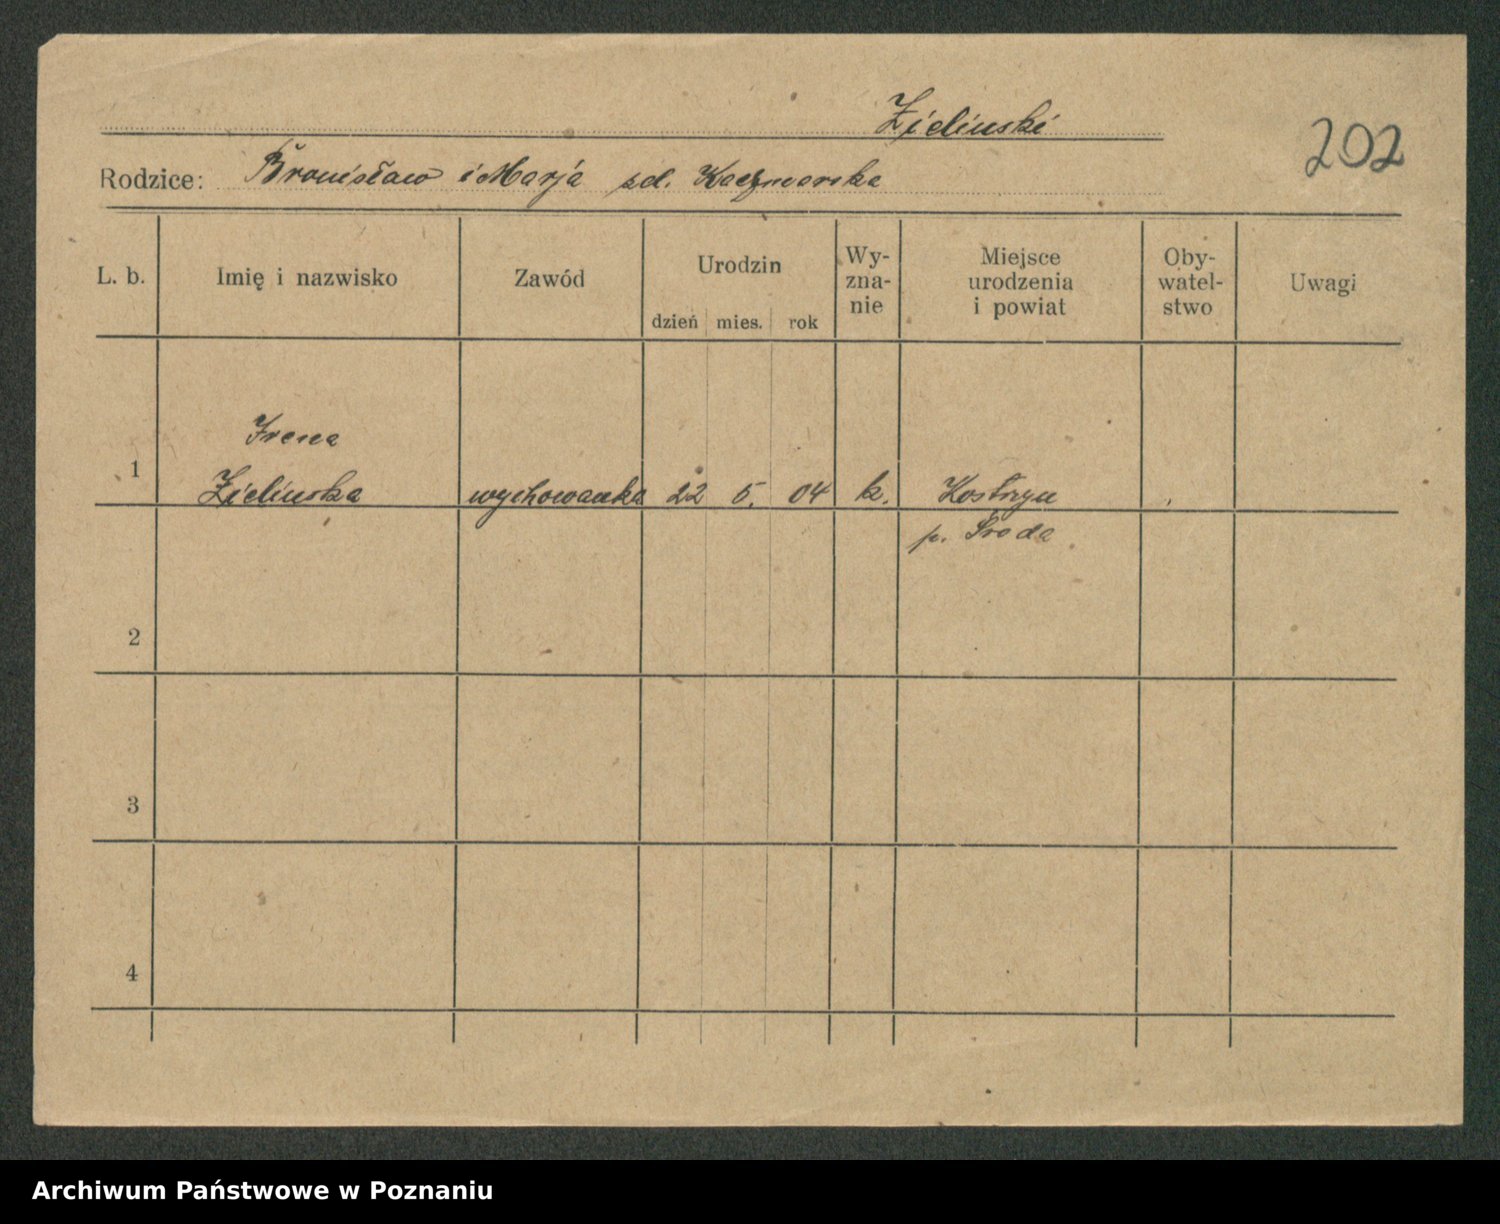 Zieliński
202
Rodzice: Bronisław i Marja zd. Kaczmarska
L. b.
Imię i nazwisko
Zawód
Urodzin
dzień mies. rok
Wy-
zna-
nie
Miejsce
urodzenia
i powiat
Oby-
watel-
stwo
Uwagi
Irena
1 Zielińska wychowanka 22 5. 04 k. Kostrzyn
p. Środa
2
3
4
Archiwum Państwowe w Poznaniu